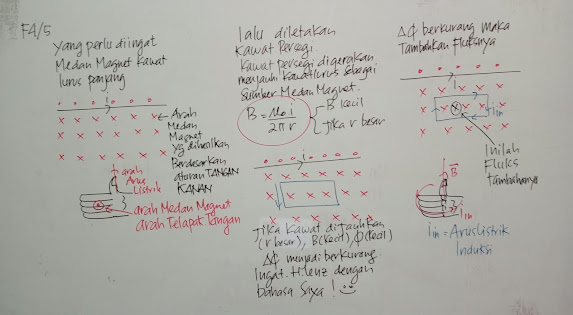 F4/5
Yang perlu diingat
Medan Magnet kawat
lurus panjang
i
Arah
Medan
Magnet
Yg dihasilkan
Berdasarkan
aturan TANGAN
KANAN
arah
Arus
Listrik
arah Medan Magnet
arah Telapak Tangan
lalu diletakan
Kawat Persegi.
Kawat persegi digerakan
menjauhi kawat lurus sebagai
Sumber Medan Magnet.
B = μo i / 2π r
B kecil
Jika r besar
i
Jika Kawat dijauhkan
(r besar), B(kecil), φ(kecil)
Δφ menjadi berkurang
Ingat. H. lenz dengan
bahasa saya !
Δφ berkurang maka
Tambahkan Fluksnya
i
i in
Inilah
Fluks
tambahannya
B
i in
i in = Arus Listrik
Induksi